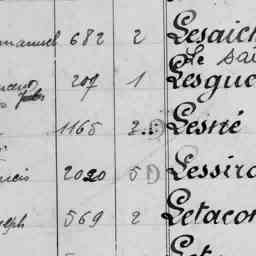 manuel 682 2 Lesaich
Le sai
207 1 Lesgue
Jules
1165 2 Lesné
cis 2020 5 D Lessira
seph 569 2 Letacon
Let